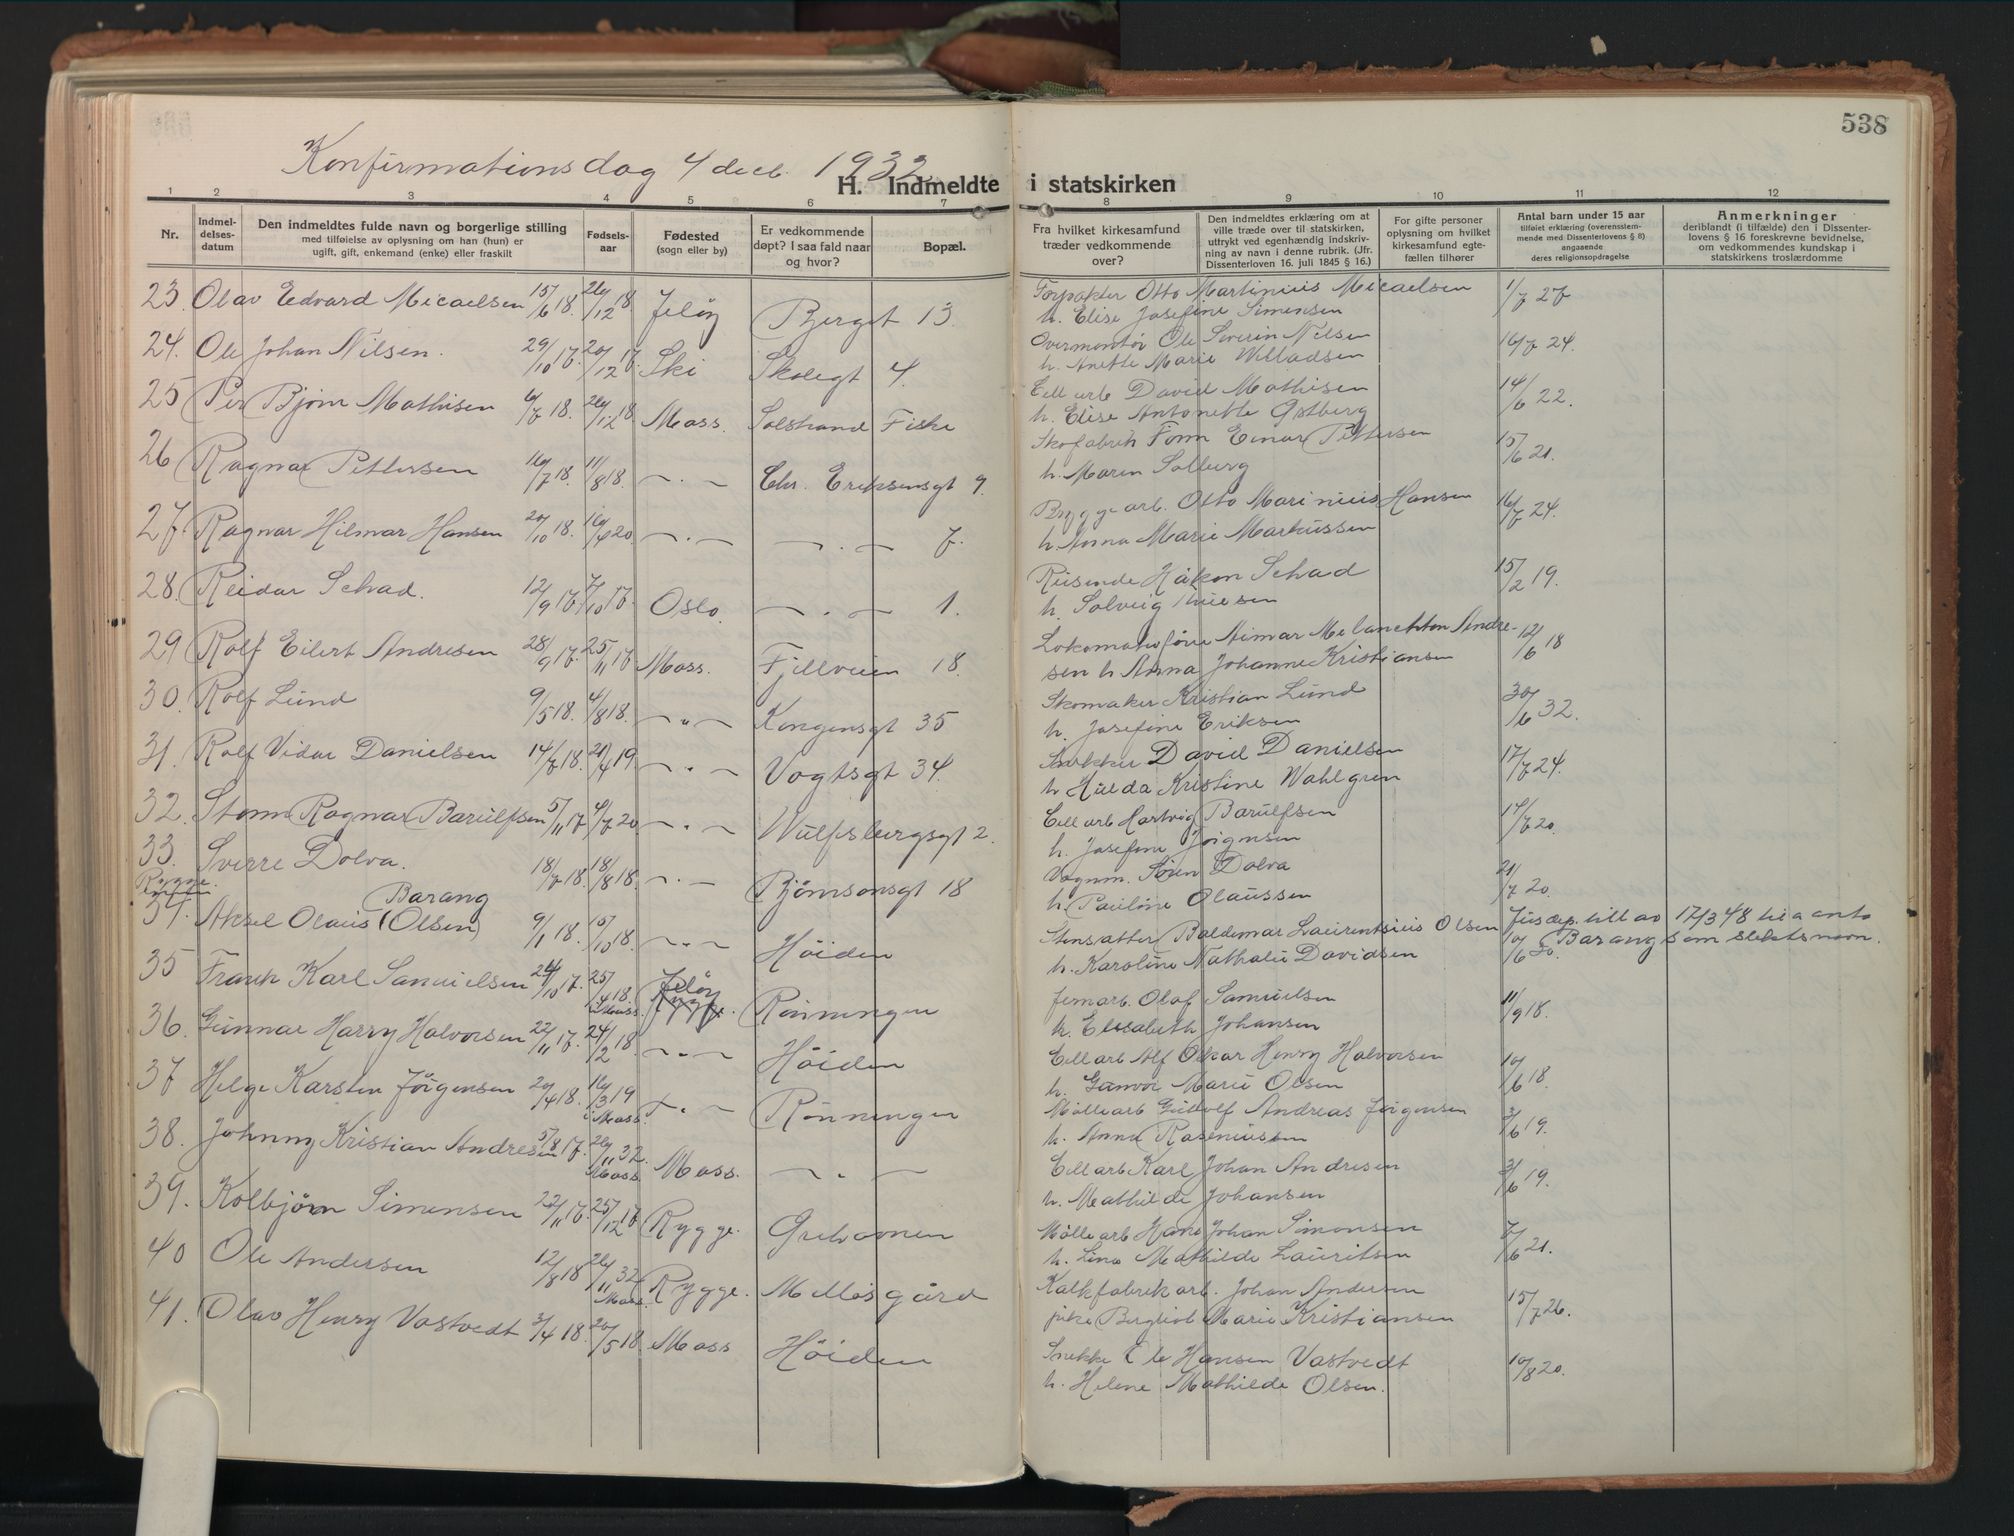 538
Konfirmationsdag 4 decb. 1932
H. Indmeldte i statskirken
1 2 3 4 5 6 7 8 9 10 11 12
Nr.
Indmel-
delses-
datum
Den indmeldtes fulde navn og borgerlige stilling
med tilføielse av oplysning om han (hun) er
ugift, gift, enkemand (enke) eller fraskilt
Fødsels-
aar
Fødested
(sogn eller by)
Er vedkommende
døpt? I saa fald naar
og hvor?
Bopæl.
Fra hvilket kirkesamfund
træder vedkommende
over?
Den indmeldtes erklæring om at
ville træde over til statskirken,
uttrykt ved egenhændig indskriv-
ning av navn i denne rubrik. (Jfr.
Dissenterloven 16. juli 1845 § 16.)
For gifte personer
oplysning om hvilket
kirkesamfund egte-
fællen tilhører
Antal barn under 15 aar
tilføiet erklæring (overensstem-
mende med Dissenterlovens § 8)
angaaende
deres religionsopdragelse
Anmerkninger
deriblandt (i tilfælde) den i Dissenter-
lovens § 16 foreskrevne bevidnelse,
om vedkommendes kundskap i
statskirkens troslærdomme
23. Olav Edvard Micaelsen 15/6 18. 26/12 18 Jeløy Berget 13. Forpakter Otto Martinius Micaelsen 1/7 27
h. Elise Josefine Simensen
24. Ole Johan Nilsen. 29/10 17. 20/12 17. Ski Skolegt 4. Overmontør Ole Severin Nilsen 16/7 24.
h. Anette Marie Willadsen
25 Per Bjørn Mathisen 6/7 18. 26/12 18 Moss. Solstrand Fiske Cell arb David Mathisen 14/6 22.
h. Elise Antonette Østberg
26 Ragnar Pettersen 16/7 18. 11/8 18. — . — Chr. Eriksensgt 9. Skofabrik Form Einar Pettersen 15/6 21.
h. Maren Solberg
27. Ragnar Hilmar Hansen 20/10 18. 16/4 20 — . — — . — 7. Bryggearb. Otto Marinius Hansen 16/7 24.
h. Anna Marie Markussen
28. Reidar Schad. 12/9 17. 7/10 17. Oslo. — . — 1. Reisende Håkon Schad 15/2 19.
h. Solveig Thuesen
29 Rolf Eilert Andresen 28/9 17. 25/11 17. Moss. Fjellveien 18. Lokomotivføre Aimar Melanchton Andre- 12/6 18
sen h Anna Johanne Kristiansen
30. Rolf Lund 9/5 18. 4/8 18. — " — Kongensgt 35 Skomaker Kristian Lund 30/6 32.
h. Josefine Eriksen
31. Rolf Vidar Danielsen 14/7 18. 21/4 19. — " — Vogtsgt 34. Snekker David Danielsen 17/7 24.
h Hulda Kristine Wahlgren
32. Storm Ragnar Barulfsen 5/11 17 4/7 20 — " — Wulfsbergsgt 2. Cell arb Hartvig Barulfsen 14/7 20.
h. Josefine Jørgensen
33. Sverre Dolva. 18/7 18. 18/8 18. — . — Bjørnsonsgt 18 Vognm. Søren Dolva 21/7 20.
h. Pauline Olaussen
Rygge.
Barang
34. Aksel Olaus (Olsen) 9/1 18. 15/10 18. — " — Høiden Stensatter Baldemar Laurentsius Olsen Jusdep. till av 17/3 48 til a anta
h. Karoline Nathalie Davidsen 10/6 30. Barang som slektsnavn.
35 Frank Karl Samuelsen 24/10 17. 25/4 18. i Moss. Jeløy Rygge. Rønningen Jernarb. Olaf Samuelsen 11/9 18.
h. Elisabeth Johansen
36. Gunnar Harry Halvorsen 22/11 17. 24/2 18 — " — Høiden Cell arb Alf Oskar Henry Halvorsen 10/6 18.
h. Ganvor Marie Olsen
37 Helge Karsten Jørgensen 20/4 18. 16/3 19 i Moss. — " — Rønningen Møllearb Gudolf Andreas Jørgensen 3/6 19.
h. Anna Rasmussen
38. Johnny Kristian Andresen 5/8 17. 26/11 32. Moss Moss. — " — Cell arb Karl Johan Andresen 3/6 19.
h. Mathilde Johansen
39. Kolbjørn Simensen 22/11 17. 25/12 17. Rygge. Grehaven Møllearb Hans Johan Simonsen 7/6 21.
h. Lina Mathilde Lauritsen
40 Ole Andersen 12/8 18 26/11 32. Moss. Rygge. Melløs gård Kalkfabrikarb. Johan Andersen 15/7 26.
pike Bergliot Marie Kristiansen
41. Olav Henry Vastvedt 3/4 18. 20/5 18. Moss Høiden Snekke Ole Hansen Vastvedt 10/8 20.
h. Helene Mathilde Olsen.